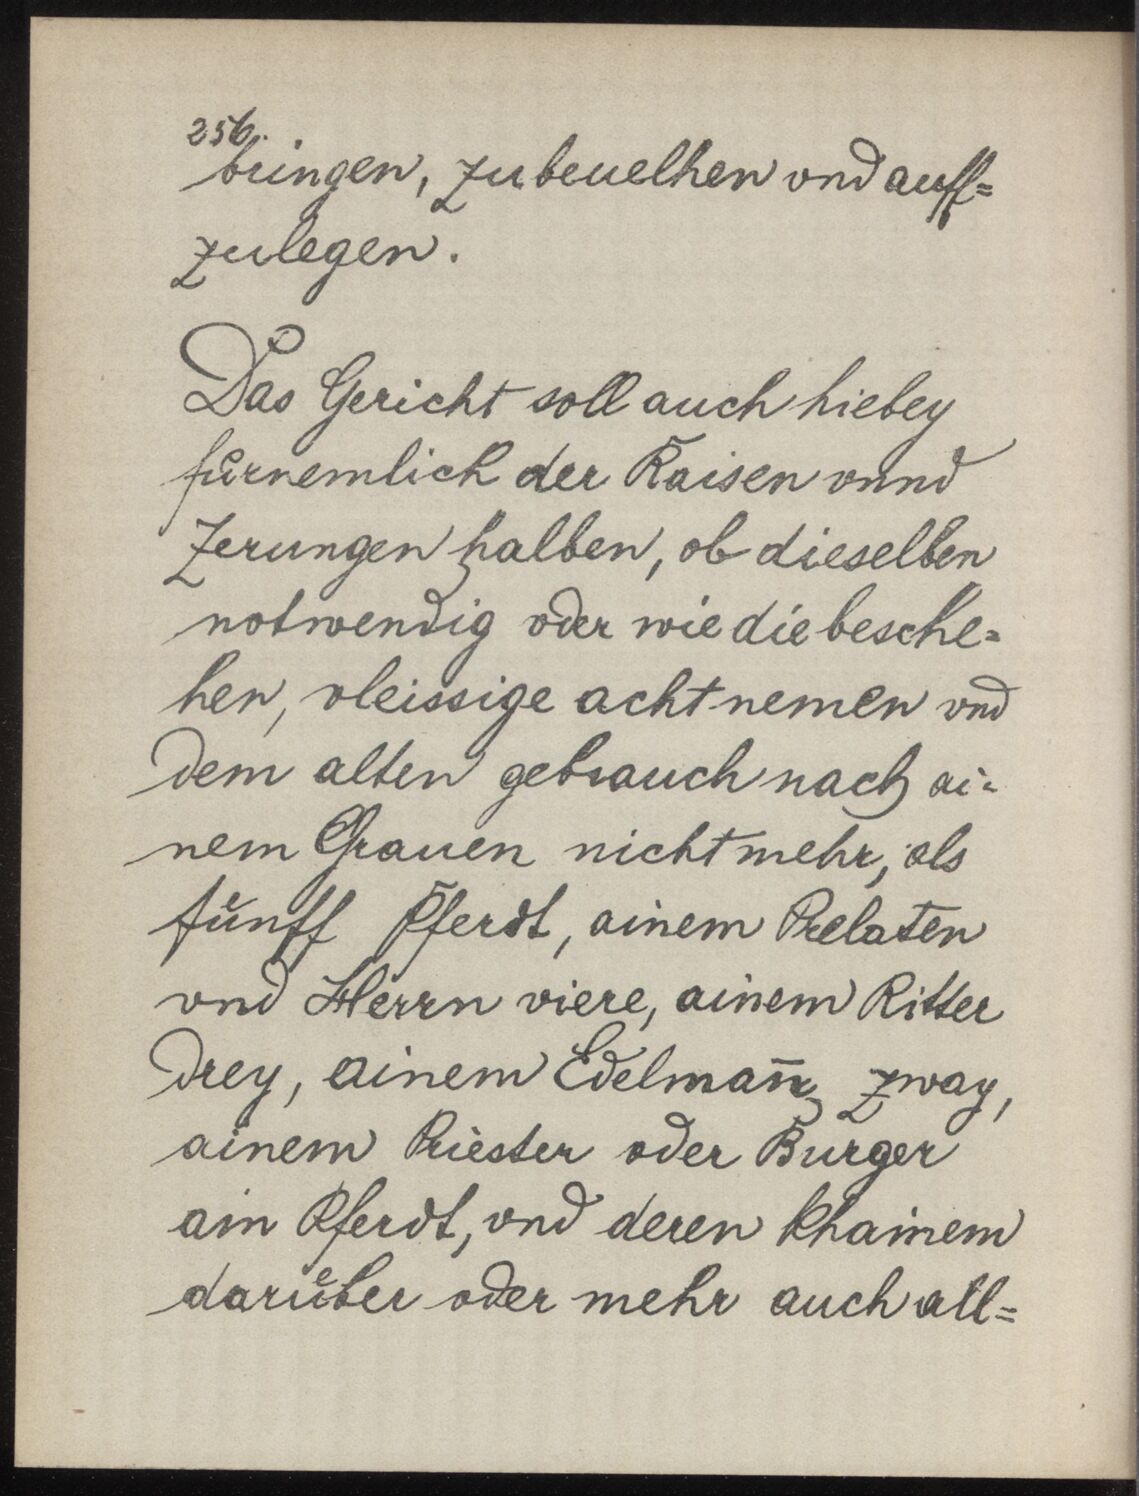 256.
bringen, zubeuelhen vnd auff=
zulegen.
Das Gericht soll auch hiebey
fůrnemlich der Raisen vnnd
Zerungen halben, ob dieselben
notwendig oder wie die besche=
hen, vleissige acht nemen vnd
dem alten gebrauch nach ai=
nem Grauen nicht mehr, als
fŭnff Pferdt, ainem Prelaten
vnd Herrn viere, ainem Ritter
drey, ainem Edelman̄ zway,
ainem Priester oder Burger
ain Pferdt, vnd deren khainem
daruͤber oder mehr auch all=